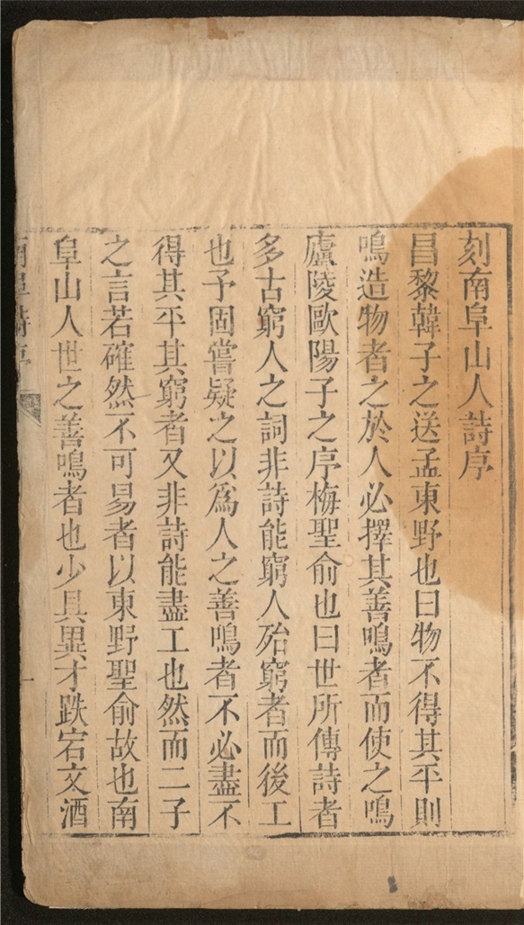 刻南阜山人詩序
昌黎韓子之送孟東野也曰物不得其平則
鳴造物者之於人必擇其善鳴者而使之鳴
廬陵歐陽子之序梅聖俞也曰世所傳詩者
多古窮人之詞非詩能窮人殆窮者而後工
也予固嘗疑之以爲人之善鳴者不必盡不
得其平其窮者又非詩能盡工也然而二子
之言若確然不可易者以東野聖俞故也南
阜山人世之善鳴者也少具異才跌宕文酒
南阜詩序
一